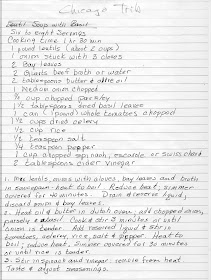 Chicago Trib
Lentil Soup with Basil
Six to eight Servings
Cooking time 1 hr 30 min
1 pound lentils (about 2 cups)
1 onion stuck with 3 cloves
2 Bay leaves
2 Quarts beef broth or water
2 tablespoons butter or oil
1 Medium onion chopped
1/2 cup chopped parsley
1 1/2 tablespoons dried basil leaves
1 can (1 pound) whole tomatoes chopped
1 1/2 cups diced celery
1/2 cup rice
1/2 teaspoon salt
1/4 teaspoon pepper
1 cup chopped spinach, escarole, or swiss chard
2 tablespoons cider vinegar
1. Mix lentils, onion with cloves, bay leaves and broth
in saucepan. heat to boil. Reduce heat; simmer
covered for 40 minutes. Drain & reserve liquid;
discard onion & bay leaves.
2. Heat oil & butter in dutch oven; add chopped onion,
parsley & basil. Cook & stir 2 minutes or until
onion is tender. Add reserved liquid & stir in
tomatoes, celery, rice, salt & pepper. Heat to
boil; reduce heat, simmer covered for 30 minutes
or until rice is tender.
3. Stir in spinach and vinegar; remove from heat
Taste & adjust seasonings.